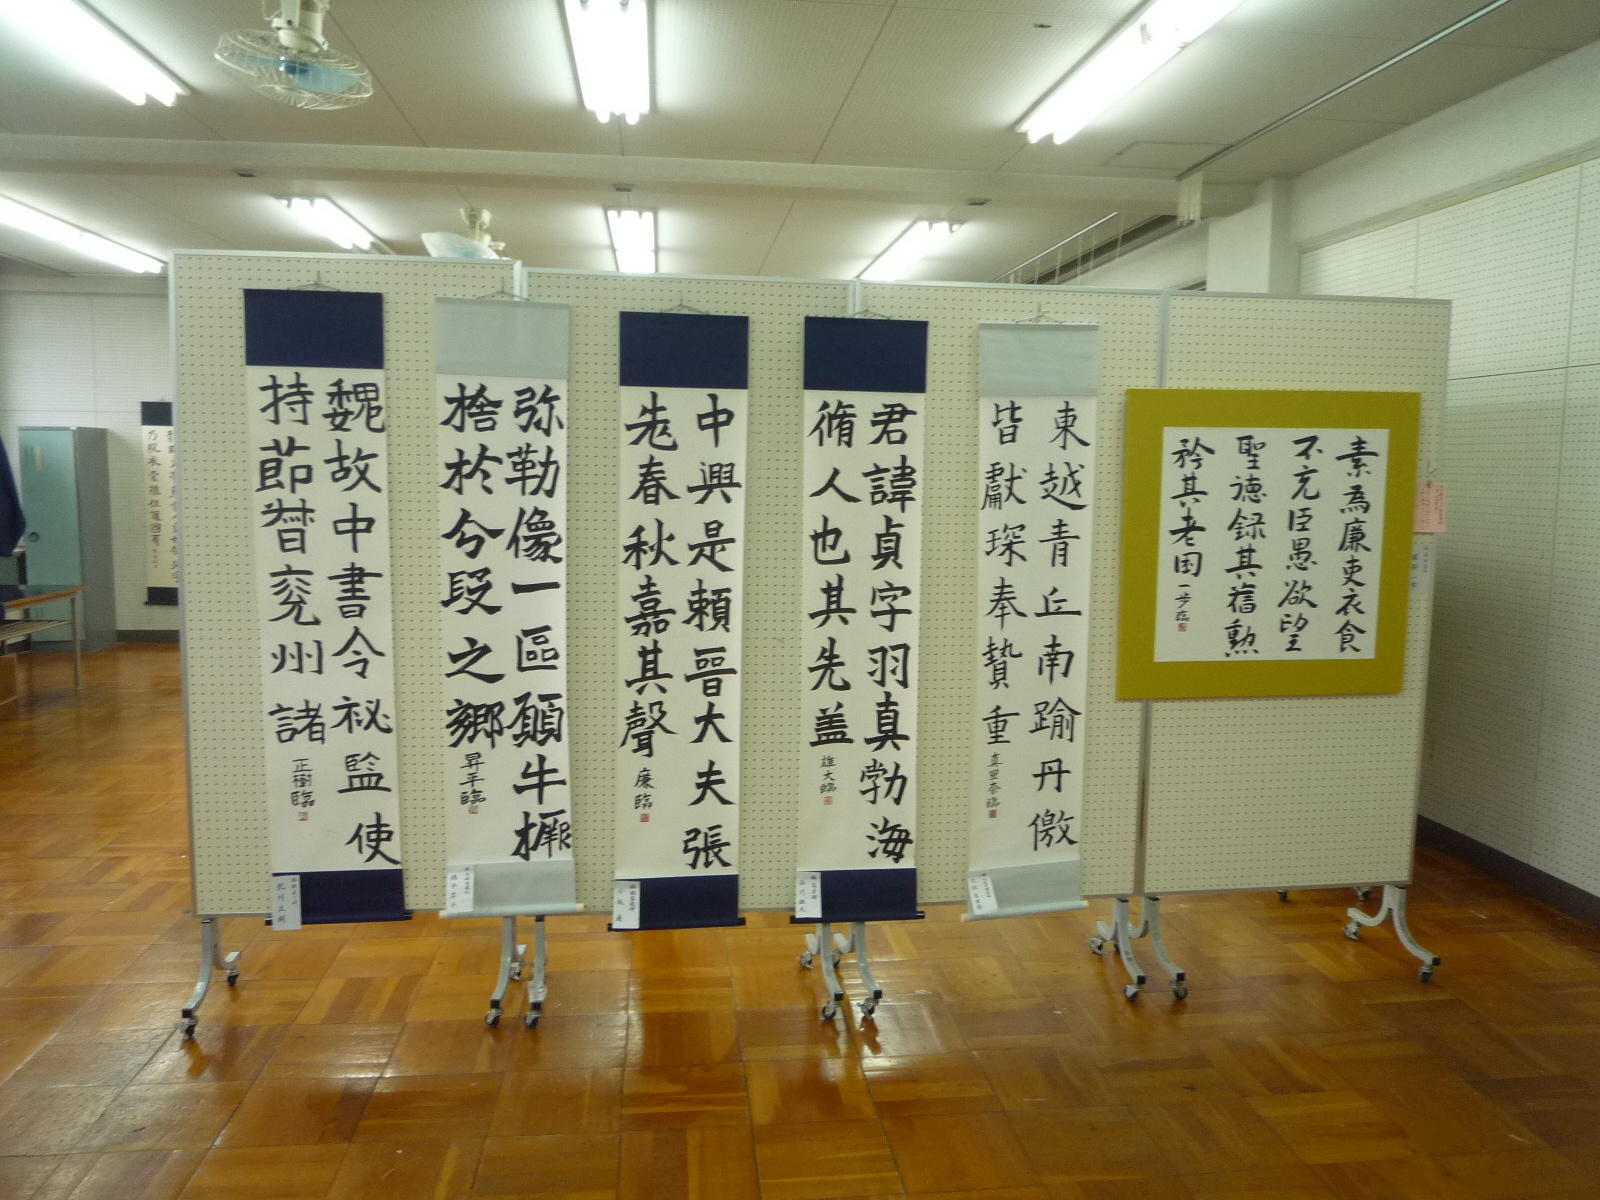 魏故中書令祕監使
持節督兗州諸
正樹臨
弥勒像一區願牛橛
捨於分段之鄉
昇平臨
中興是賴晉大夫張
老春秋嘉其聲
廉臨
君諱貞字羽真勃海
脩人也其先盖
雄大臨
東越青丘南踰丹儌
皆獻琛奉贄重
真里奈臨
素為廉吏衣食
不充臣愚欲望
聖德錄其舊勲
矜其老困
一步臨